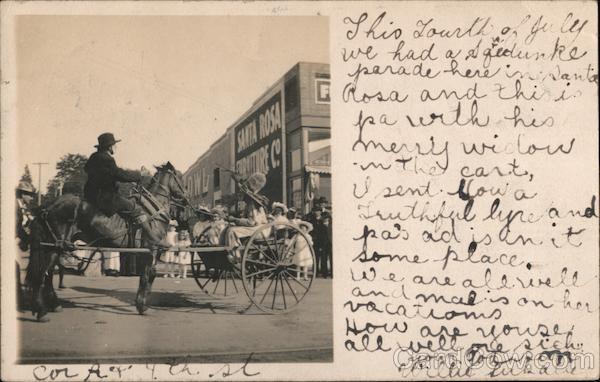 SANTA ROSA
FURNITURE CO.
Cor A & 4th. st
This Fourth of July
we had a
parade here in Santa
Rosa and this is
pa with his
merry widow
in the cart,
I sent you a
Truthful lyre and
pa's ad is in it
some place.
We are all well
and ma is on her
vacations
How are youse
all well or sick
CardCow.com